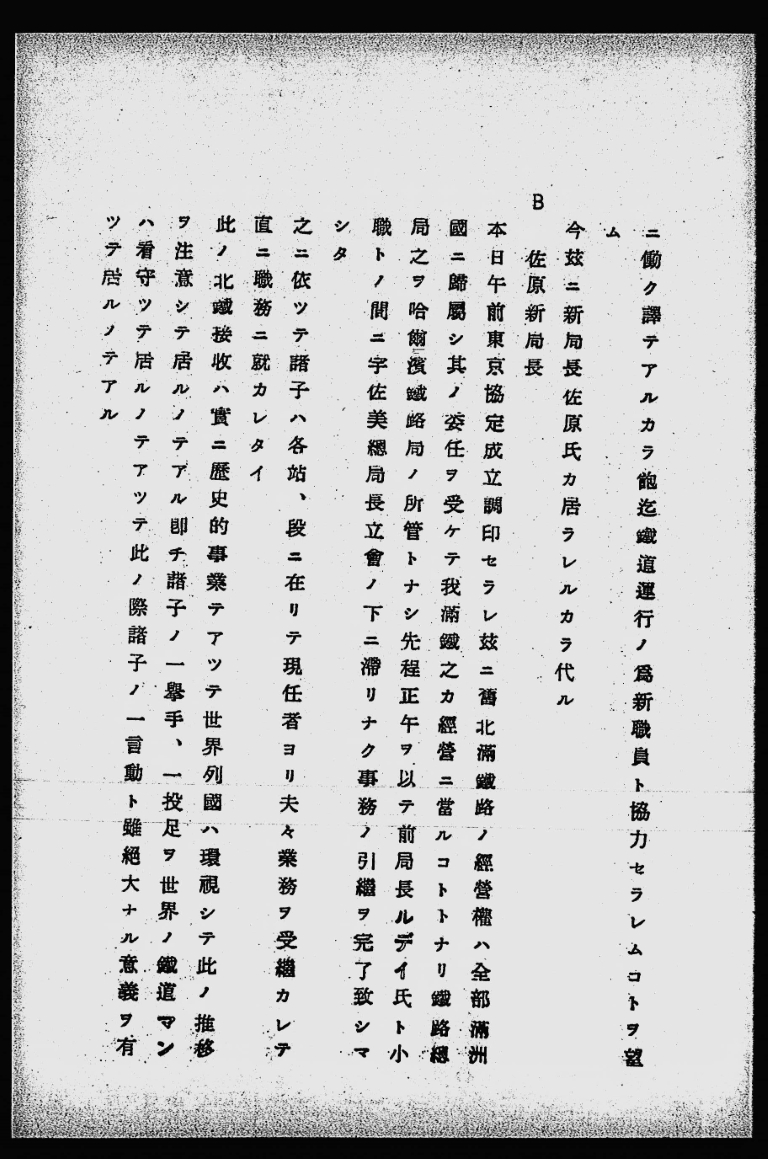 ニ働ク譯テアルカラ飽迄鐵道運行ノ爲新職員ト協力セラレムコトヲ望
ム
今玆ニ新局長佐原氏カ居ラレルカラ代ル
B
佐原新局長
本日午前東京協定成立調印セラレ玆ニ舊北滿鐵路ノ經營權ハ全部滿洲
國ニ歸屬シ其ノ委任ヲ受ケテ我滿鐵之カ經營ニ當ルコトトナリ鐵路總
局之ヲ哈爾濱鐵路局ノ所管トナシ先程正午ヲ以テ前局長ルデイ氏ト小
職トノ間ニ宇佐美總局長立會ノ下ニ滯リナク事務ノ引繼ヲ完了致シマ
シタ
之ニ依ツテ諸子ハ各站、段ニ在リテ現任者ヨリ夫々業務ヲ受繼カレテ
直ニ職務ニ就カレタイ
此ノ北鐵接收ハ實ニ歷史的事業テアツテ世界列國ハ環視シテ此ノ推移
ヲ注意シテ居ルノテアル卽チ諸子ノ一擧手、一投足ヲ世界ノ鐵道マン
ハ看守ツテ居ルノテアツテ此ノ際諸子ノ一言動ト雖絕大ナル意義ヲ有
ツテ居ルノテアル